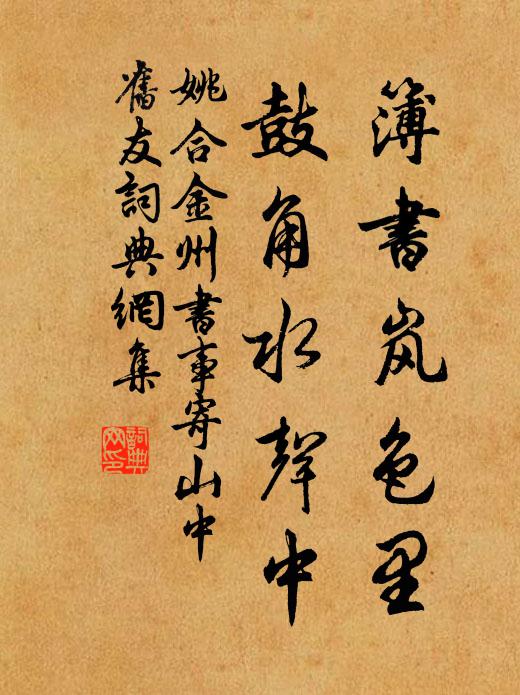 簿書岚色里
鼓角水聲中
姚合金州書事寄山中
舊友詞典網集
詞典
网印